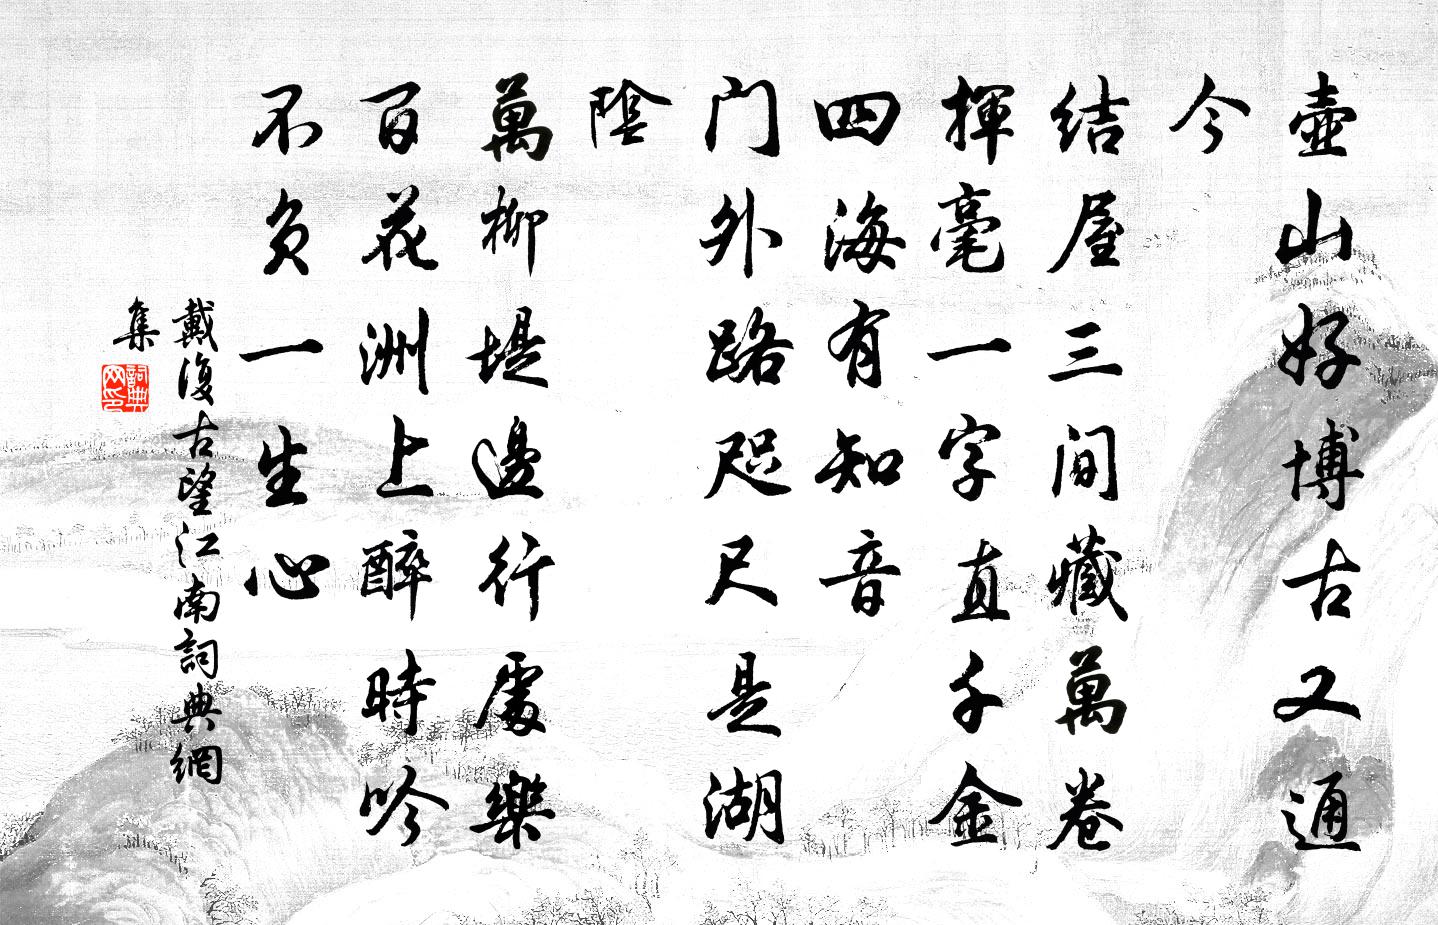 壺山好博古又通
今
結屋三间藏萬卷
揮毫一字直千金
四海有知音
门外路咫尺是湖
陰
萬柳堤邊行處樂
百花洲上醉時吟
不負一生心
戴復古望江南詞典網
集
詞典
网印